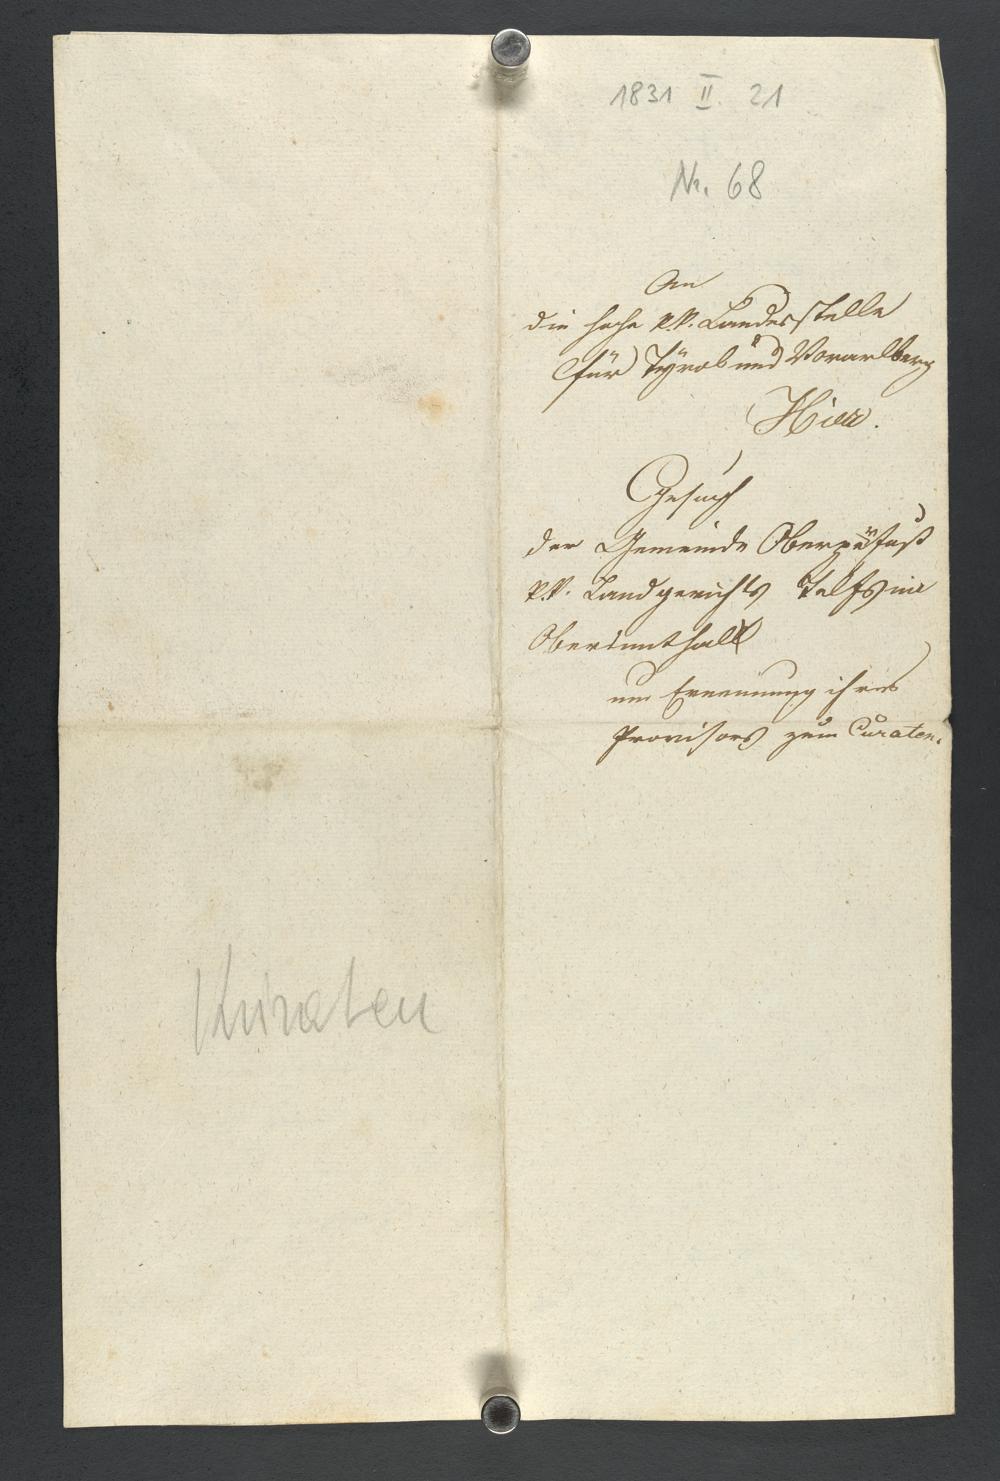 1831 II. 21
Nr. 68
An
die hohe k.k. Landesstelle
für Tÿrol und Vorarlberg
Hier.
Gesuch
der Gemeinde Oberperfuß
k.k. Landgerichts Telfs im
Oberinnthall
um Ernennung ihres
Provisors zum Curaten.
Kuraten